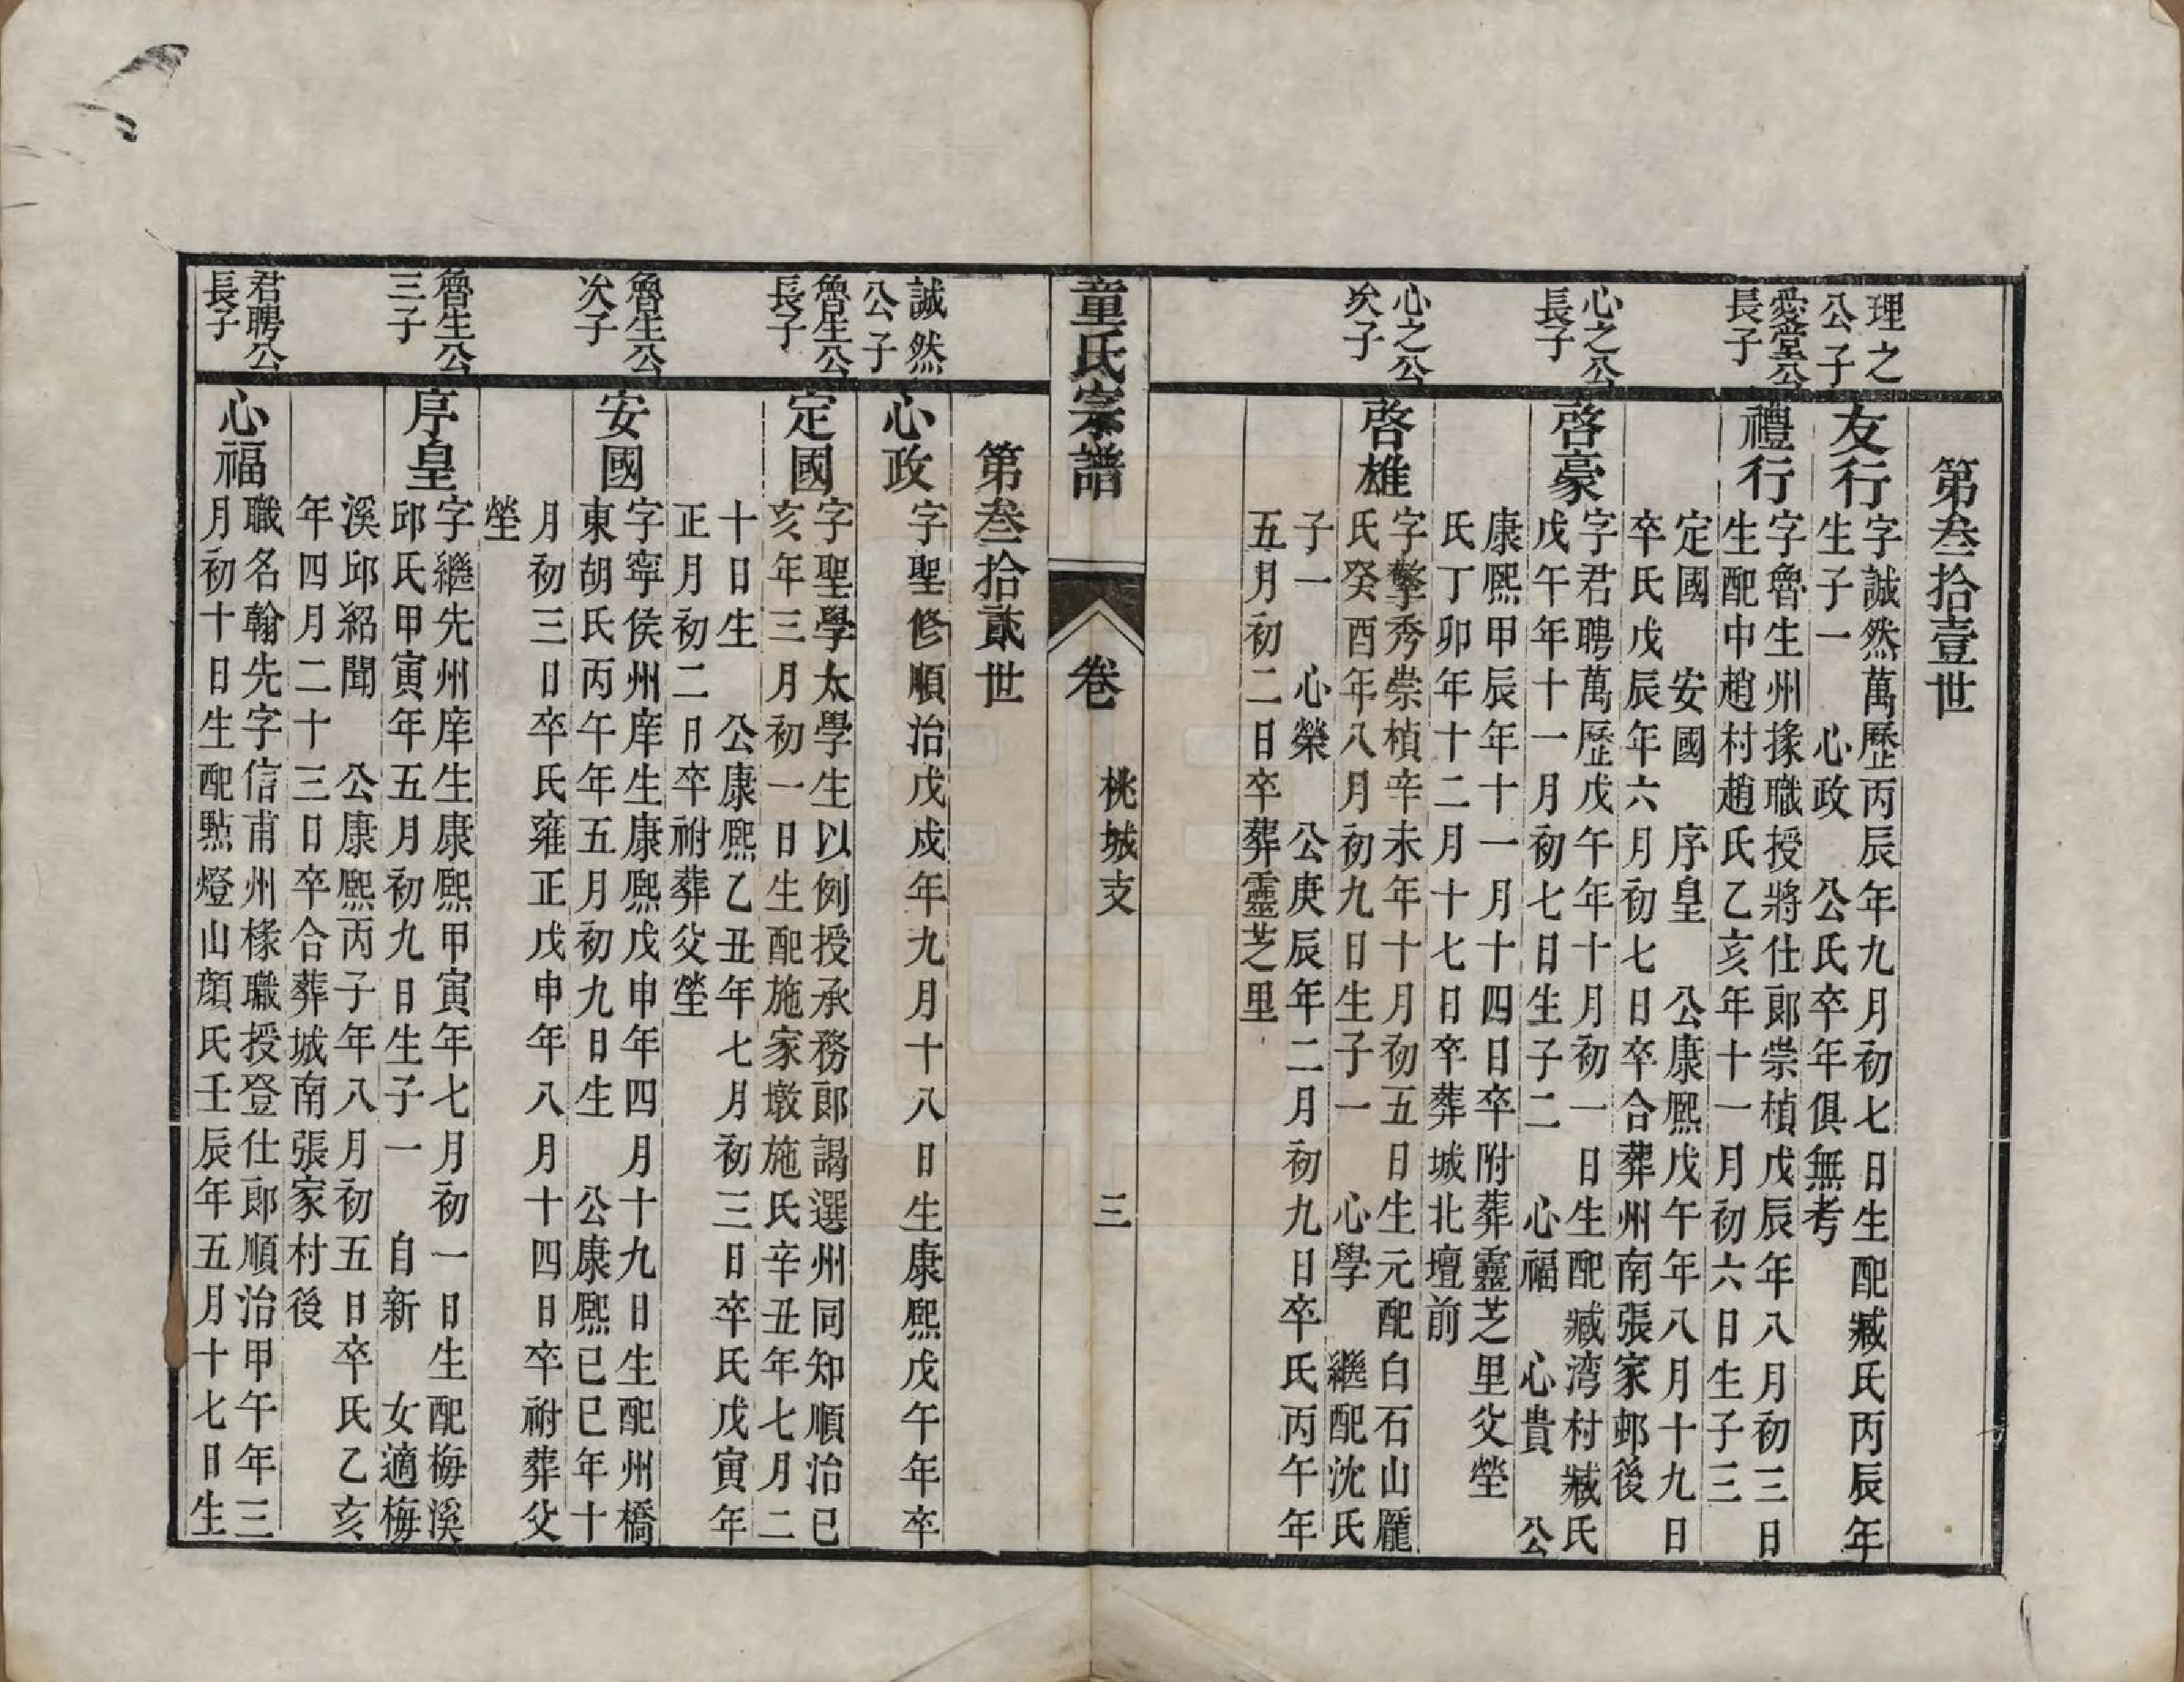 第叁拾壹世
理之
公子
友行
字誠然萬歷丙辰年九月初七日生配臧氏丙辰年
生子一　心政　公氏卒年俱無考
愛堂公
長子
禮行
字魯生州掾職授將仕郎崇楨戊辰年八月初三日
生配中趙村趙氏乙亥年十一月初六日生子三
定國　安國　序皇　公康熙戊午年八月十九日
卒氏戊辰年六月初七日卒合葬州南張家邨後
心之公
長子
啓豪
字君聘萬歷戊午年十月初一日生配臧湾村臧氏
戊午年十一月初七日生子二　心福　心貴　公
康熙甲辰年十一月十四日卒附葬靈芝里父塋
氏丁卯年十二月十七日卒葬城北壇前
心之公
次子
啓雄
字擎秀崇楨辛未年十月初五日生元配白石山龎
氏癸酉年八月初九日生子一　心學　繼配沈氏
子一　心榮　公庚辰年二月初九日卒氏丙午年
五月初二日卒葬靈芝里
童氏宗譜
卷
桃城支
三
第叁拾貳世
誠然
公子
心政
字聖修順治戊戌年九月十八日生康熙戊午年卒
魯生公
長子
定國
字聖學太學生以例授承務郎謁選州同知順治已
亥年三月初一日生配施家墩施氏辛丑年七月二
十日生　公康熙乙丑年七月初三日卒氏戊寅年
正月初二日卒祔葬父塋
魯生公
次子
安國
字寧侯州庠生康熙戊申年四月十九日生配州橋
東胡氏丙午年五月初九日生　公康熙已巳年十
月初三日卒氏雍正戊申年八月十四日卒祔葬父
塋
魯生公
三子
序皇
字繼先州庠生康熙甲寅年七月初一日生配梅溪
邱氏甲寅年五月初九日生子一　自新　女適梅
溪邱紹聞　公康熙丙子年八月初五日卒氏乙亥
年四月二十三日卒合葬城南張家村後
君聘公
長子
心福
職名翰先字信甫州掾職授登仕郎順治甲午年三
月初十日生配㸃燈山顔氏壬辰年五月十七日生